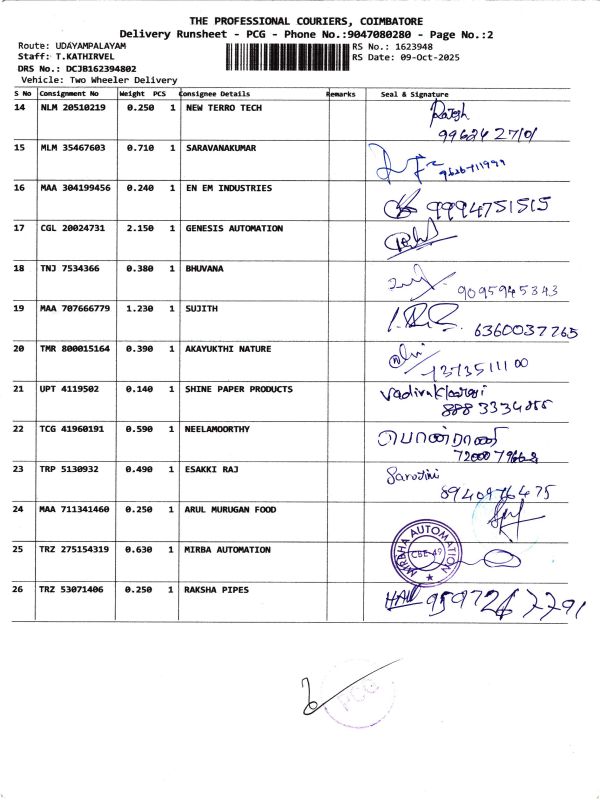 THE PROFESSIONAL COURIERS, COIMBATORE
Delivery Runsheet - PCG - Phone No.:9047080280 - Page No.:2
Route: UDAYAMPALAYAM
RS No.: 1623948
Staff: T.KATHIRVEL
RS Date: 09-Oct-2025
DRS No.: DCJB162394802
Vehicle: Two Wheeler Delivery
S No Consignment No Weight PCS Consignee Details Remarks Seal & Signature
14 NLM 20510219 0.250 1 NEW TERRO TECH
15 MLM 35467603 0.710 1 SARAVANAKUMAR
16 MAA 304199456 0.240 1 EN EM INDUSTRIES 9994751515
17 CGL 20024731 2.150 1 GENESIS AUTOMATION
18 TNJ 7534366 0.380 1 BHUVANA
9095945343
19 MAA 707666779 1.230 1 SUJITH
6360037265
20 TMR 800015164 0.390 1 AKAYUKTHI NATURE
21 UPT 4119502 0.140 1 SHINE PAPER PRODUCTS
22 TCG 41960191 0.590 1 NEELAMOORTHY
23 TRP 5130932 0.490 1 ESAKKI RAJ
8940976475
24 MAA 711341460 0.250 1 ARUL MURUGAN FOOD
25 TRZ 275154319 0.630 1 MIRBA AUTOMATION MIRBHA AUTOMATION CBE-49
26 TRZ 53071406 0.250 1 RAKSHA PIPES
PCG